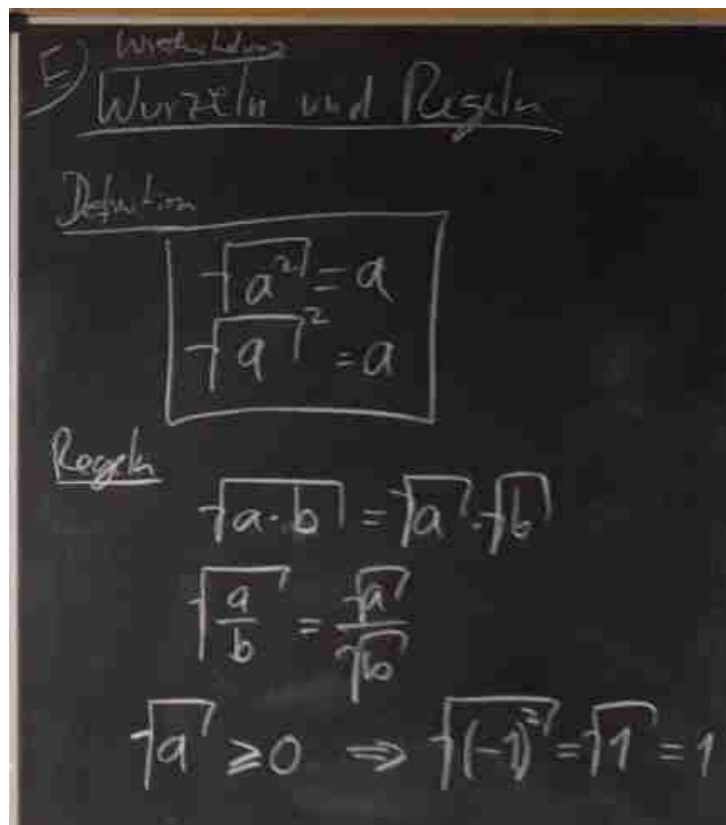 E) Wiederholung
Wurzeln und Regeln
Definition
√a² = a
√a² = a
Regeln
√a·b = √a · √b
√a/b = √a/√b
√a ≥ 0 ⇒ √(-1)² = √1 = 1